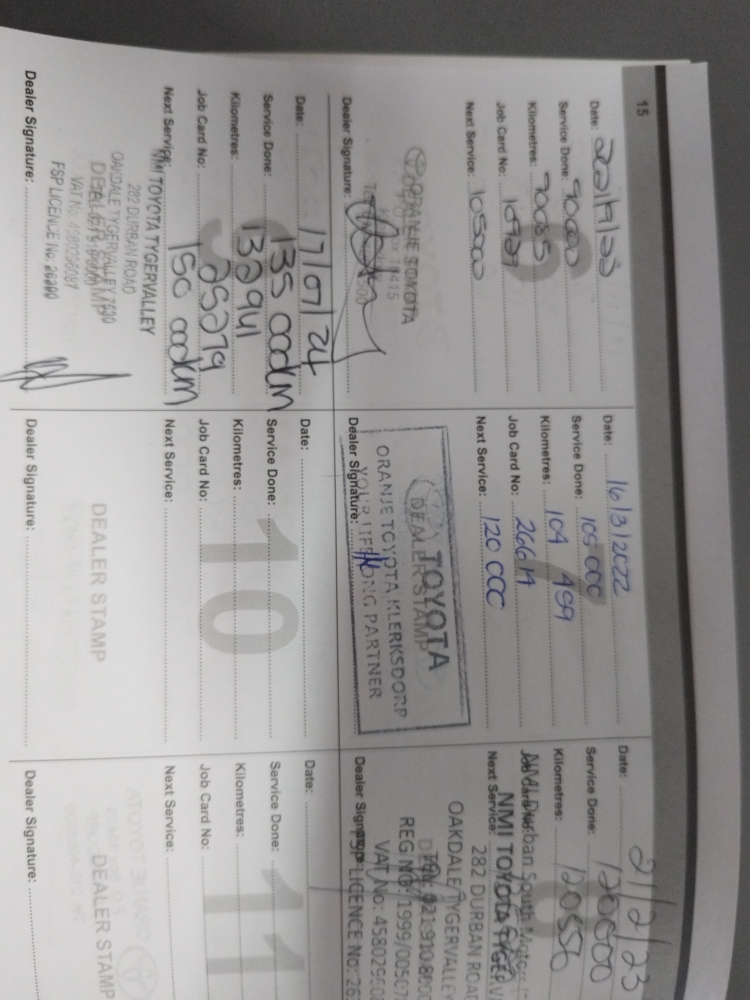 15
Date:
Service Done: 90000
Kilometres: 90085
Job Card No:
Next Service: 105000
ORANJE TOYOTA
Dealer Signature:
Date: 16/3/2022
Service Done: 105 000
Kilometres: 104 459
Job Card No:
Next Service: 120 000
TOYOTA
DEALER STAMP
ORANJE TOYOTA KLERKSDORP
YOUR LIFELONG PARTNER
Dealer Signature:
Date: 21/2/23
Service Done: 120000
Kilometres: 120556
NMI Durban South Motors
Next Service:
NMI TOYOTA TYGERV
282 DURBAN ROAD
OAKDALE TYGERVALLEY
TEL: 021 910 8900
REG NO: 1999/00507
VAT No: 45802960
FSP LICENCE No: 26
Date: 17/07/24
Service Done: 135 000km
Kilometres: 132941
Job Card No: 25279
Next Service: 150 000km
NMI TOYOTA TYGERVALLEY
282 DURBAN ROAD
OAKDALE TYGERVALLEY 7530
DEALER STAMP
FSP LICENCE No: 26200
Dealer Signature:
10
Date:
Service Done:
Kilometres:
Job Card No:
Next Service:
DEALER STAMP
Dealer Signature:
11
Date:
Service Done:
Kilometres:
Job Card No:
Next Service:
DEALER STAMP
Dealer Signature: